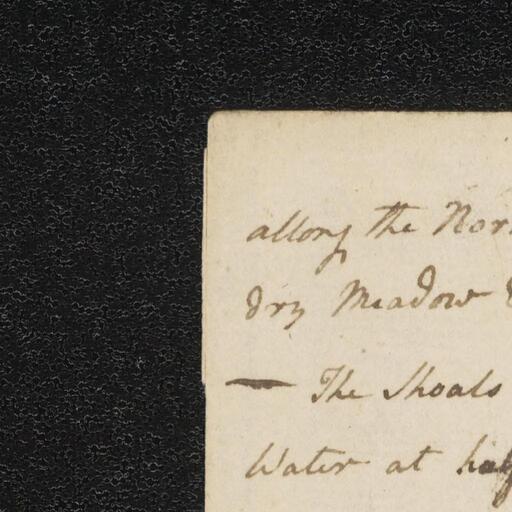 allong the Nor
dry Meadow
— The Shoals
Water at half